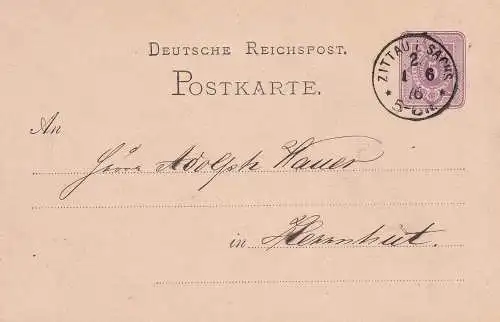 DEUTSCHE REICHSPOST.
POSTKARTE.
ZITTAU i. SACHS
2
1 6
76
5-6N.
An
Herrn Adolph Wauer
in Herrnhut.